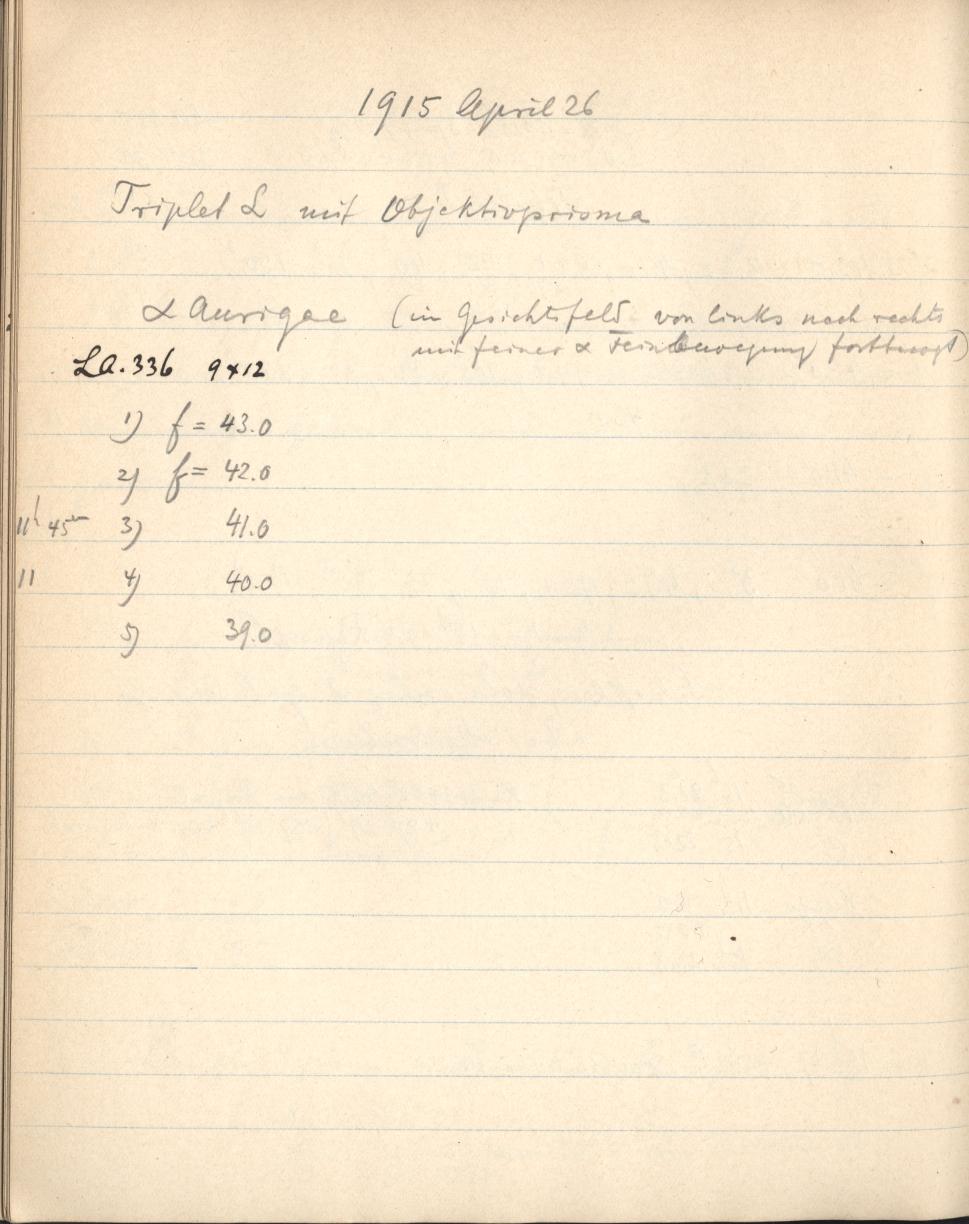 1915 April 26
Triplet L mit Objektivprisma
α Aurigae (im Gesichtsfeld von links nach rechts
mit feiner α Feinbewegung fortbewegt)
LA.336 9x12
1) f = 43.0
2) f = 42.0
11h 45m 3) 41.0
11 4) 40.0
5) 39.0